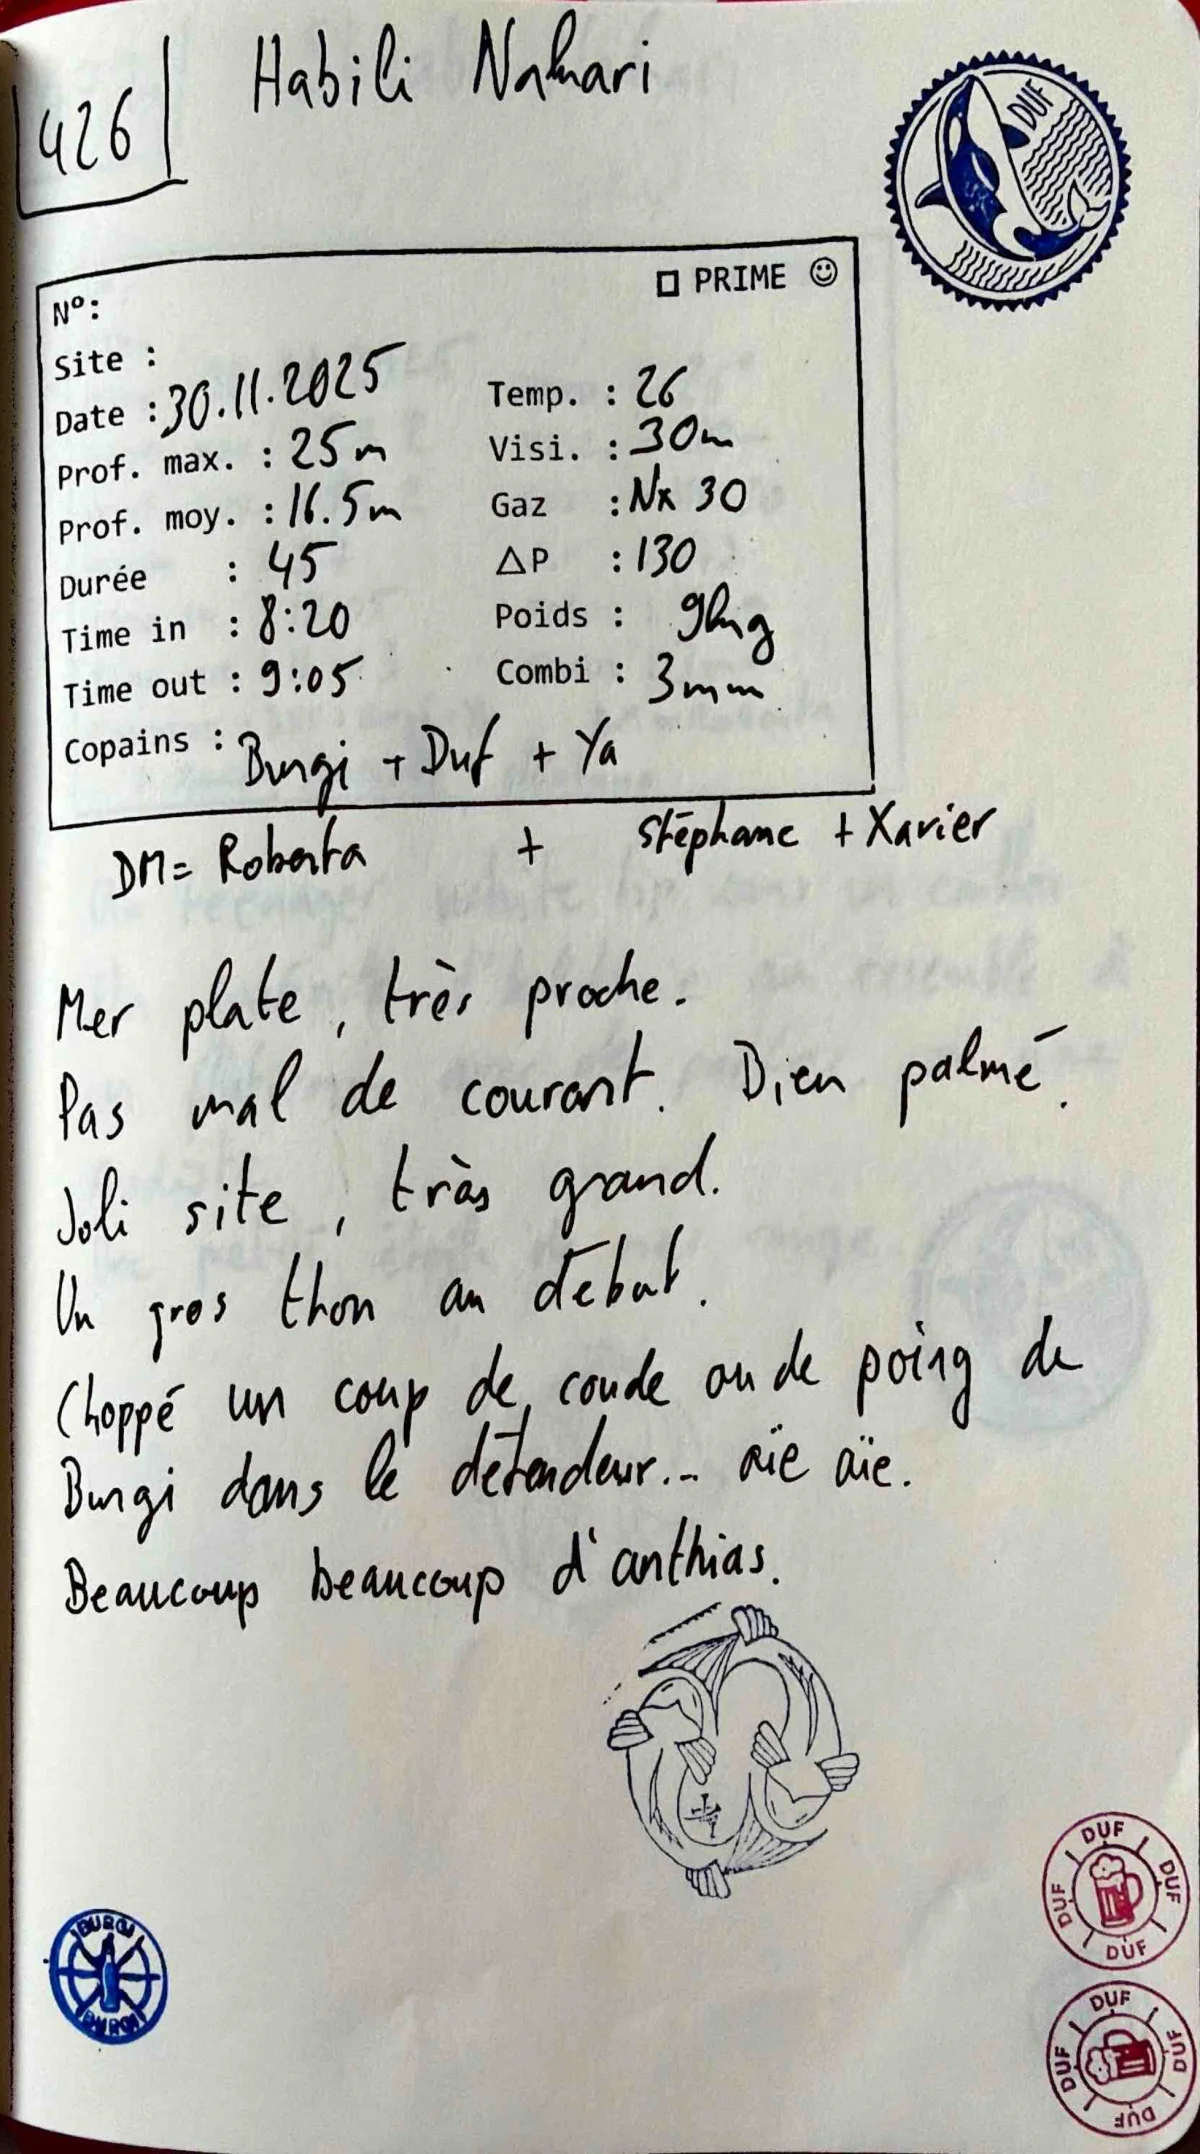 426
Habili Nahari
DUF
□ PRIME ☺
N°:
Site :
Date : 30.11.2025
Prof. max. : 25m
Prof. moy. : 16.5m
Durée : 45
Time in : 8:20
Time out : 9:05
Temp. : 26
Visi. : 30m
Gaz : Nx 30
△P : 130
Poids : 9kg
Combi : 3mm
Copains : Burgi + Duf + Ya
DM= Roberta + Stéphane + Xavier
Mer plate, très proche.
Pas mal de courant. Bien palmé.
Joli site, très grand.
Un gros thon au début.
Choppé un coup de coude ou de poing de
Burgi dans le détendeur... aïe aïe.
Beaucoup beaucoup d'anthias.
BURGI
BURGI
DUF
DUF
DUF
DUF
DUF
DUF
DUF
DUF